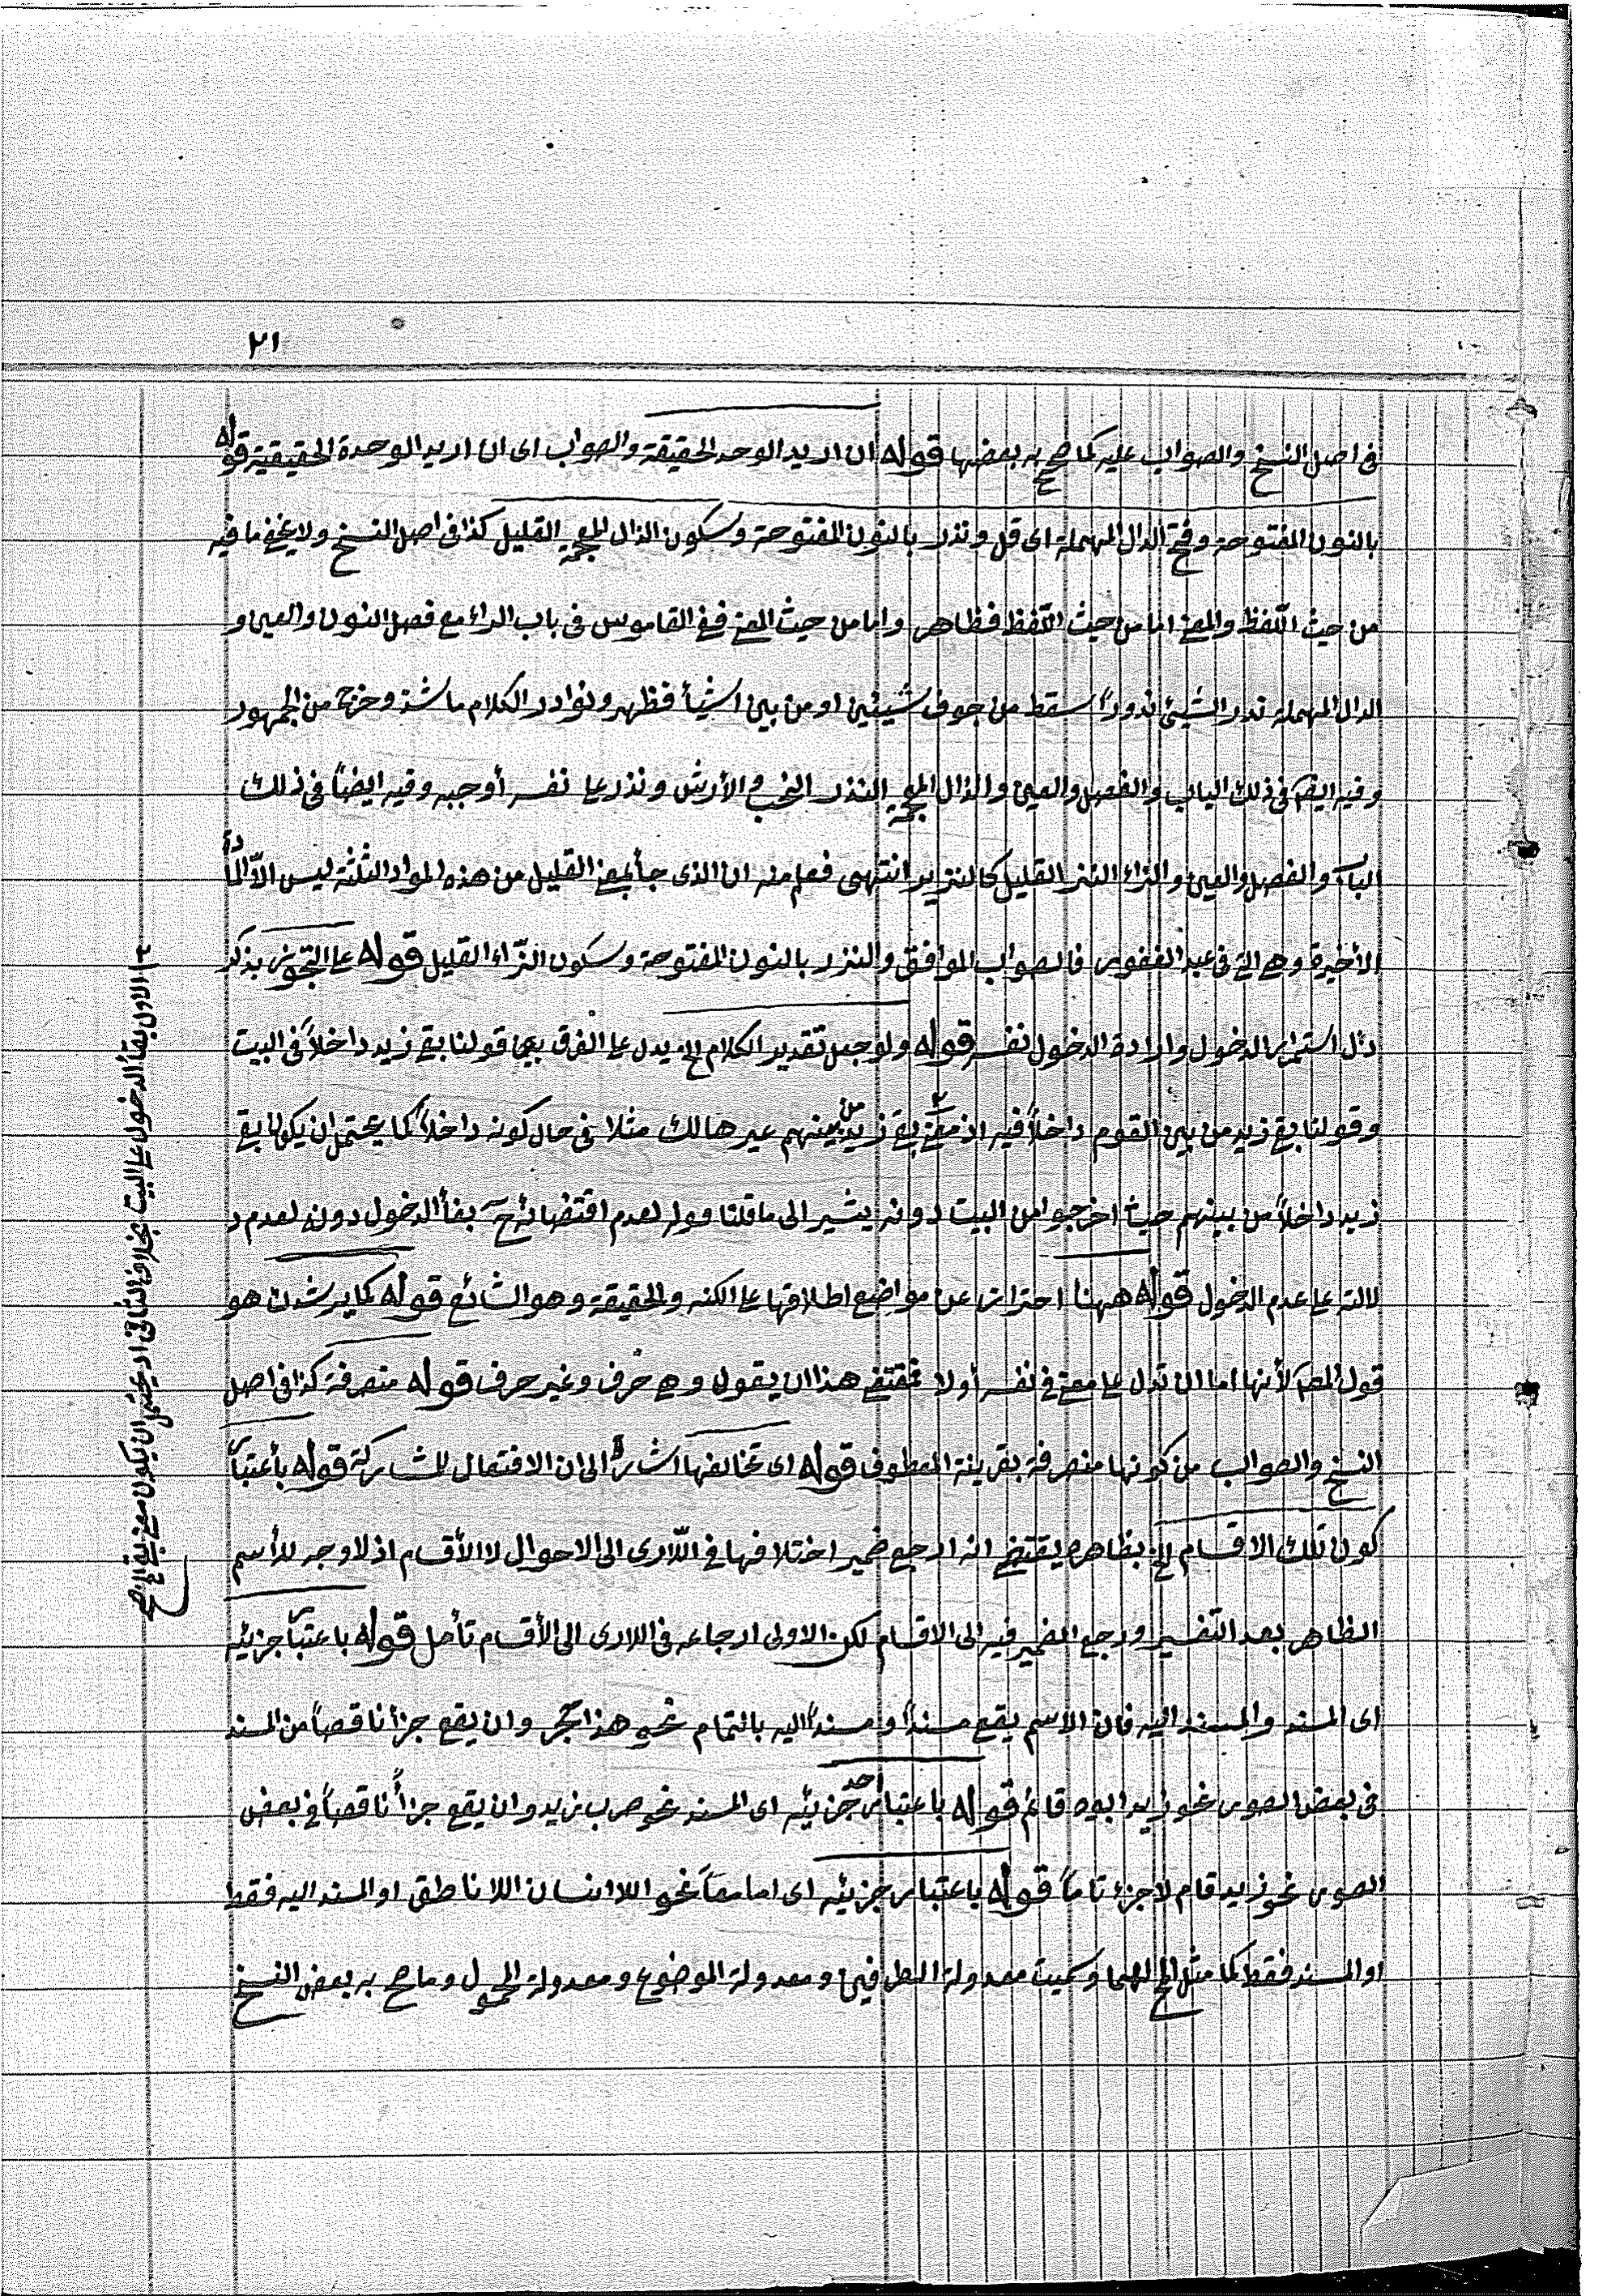 ٢١
فى اصل النسخ والصواب عليه كما صح به بعضها قوله ان اريد الوحد الحقيقة والصواب اى ان اريد الوحدة الحقيقية قوله
بالنون المفتوحة وفتح الدال المهملة اى قل ونذر بالنون المفتوحة وسكون الذال المعجمه القليل كذا فى اصل النسخ ولا يخفى ما فيه
من حيث اللّفظ والمعنى اما من حيث اللّفظ فظاهر واما من حيث المعنى ففى القاموس فى باب الراء مع فصل النون والعين و
الدال المهملة ندر الشيئ ندوراً سقط من جوف شيئين او من بين اشيأ فظهر ونوادر الكلام ما شذ وخرج من الجمهور
وفيه ايضً فى ذلك الباب والفصل والعين والذال المعجمه النذر النحب والأرش ونذر على نفسه أوجبه وفيه ايضاً فى ذلك
الباب والفصل والعين والزاء النزر القليل كالنزير انتهى فعلم منه ان الذى جأ لمعنى القليل من هذه المواد الثلثة ليس الاّ المادة
الأخيرة وهى التى فى عبد الغفور فالصواب الموافق والنزر بالنون المفتوحة وسكون الزّاء القليل قوله على التجوز بذكر
دئل استمرار الدخول وارادة الدخول نفسه قوله ولو جعل تقدير الكلام الخ يدل على الفرق بين قولنا بقى زيد داخلاً فى البيت
وقولنا بقى زيد من بين القوم داخلاً فيه اذ معنى بقى زيد من بينهم غير هالك مثلا فى حال كونه داخلاً كما يحتمل ان يكون بقى
زيد داخلاً من بينهم حيث اخرجوا من البيت دونه يشير الى ما قلنا قوله لعدم اقتضائه ح بقأ الدخول دون لعدم د
لالته على عدم الدخول قوله ههنا احتراز عن مواضع اطلاقها على الكنه والحقيقة وهو الشائع قوله كما يرشدن هو
قول المصَ لأنها اما ان تدل على معنى فى نفسه أولا فمقتضى هذا ان يقول وهى حرف وغير حرف قوله منصرفة كذا فى اصل
النسخ والصواب من كونها منصرفة بقرينة المعطوف قوله اى تخالفها اشارة الى ان الافتعال للمشاركة قوله بأعتبار
كون تلك الاقسام الخ بظاهره يقتضى انه ارجع ضمير اختلافها فى اللّارى الى الاحوال لا الأقسام اذ لا وجه للأسم
الظاهر بعد التّفسير ورجع الضمير فيه الى الاقسام لكن الاولى ارجاعه فى اللارى الى الأقسام تأمل قوله باعتبار جزئيه
اى المسند والمسند اليه فان الاسم يقع مسنداً ومسنداً اليه بالتمام نحو هذا حجر وان يقع جزأ ناقصاً من المسند
فى بعض الصور نحو زيد ابوه قائم قوله باعتبار احد جزئيه اى المسند نحو ضرب زيد وان يقع جزأً ناقصاً فى بعض
الصور نحو زيد قام لا جزء تاماً قوله باعتبار جزئيه اى اما معاً نحو اللا انسان اللا ناطق او المسند اليه فقط
او المسند فقط كما مثل الخ لهما وسميت معدولة الطرفين ومعدولة الموضوع ومعدولة المحمول وما صح به بعض النسخ
الاول بقأ الدخول على البيت بخلاف الثانى اذ يحتمل ان يكون معنى بقى